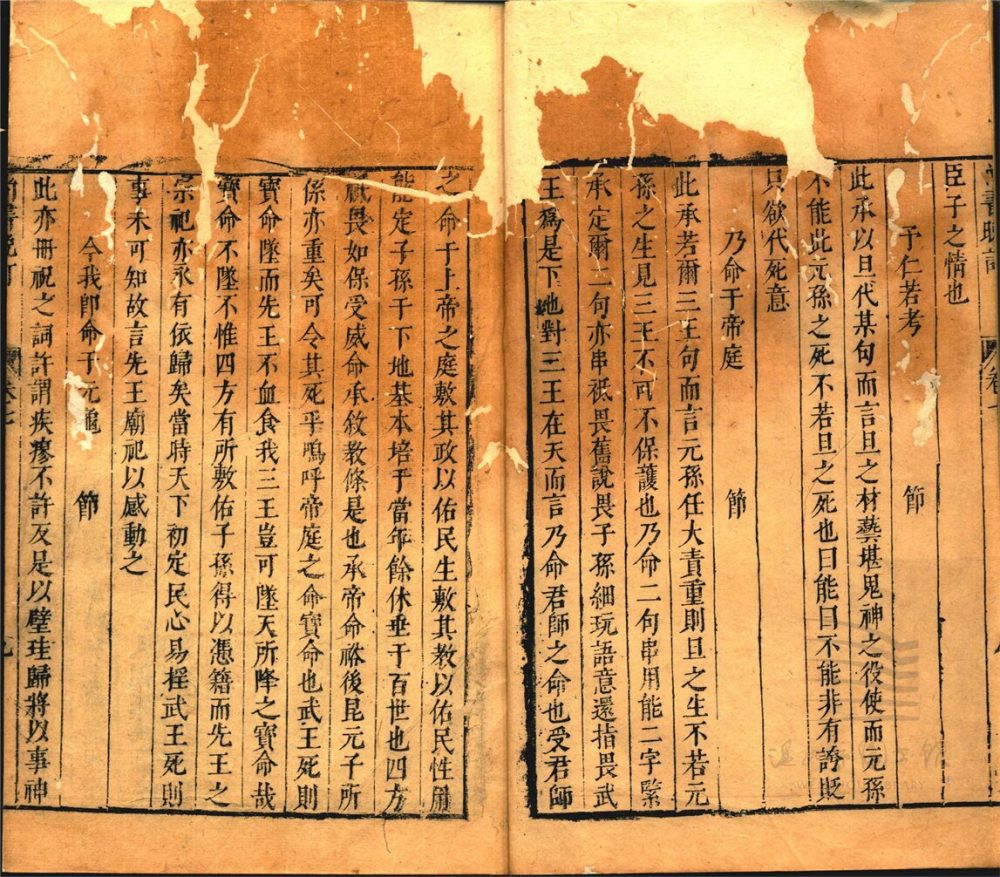 臣子之情也
予仁若考 節
此承以旦代某句而言旦之材藝堪鬼神之役使而元孫
不能此元孫之死不若旦之死也曰能曰不能非有誇貶
只欲代死意
乃命于帝庭 節
此承若爾三王句而言元孫任大責重則旦之生不若元
孫之生見三王不可不保護也乃命二句串用能二字緊
承定爾二句亦串祗畏舊說畏子孫細玩語意還指畏武
王為是下地對三王在天而言乃命君師之命也受君師
之命于上帝之庭敷其政以佑民生敷其教以佑民性用
能定子孫于下地基本培于當年餘休垂于百世也四方
祗畏如保受威命承敘教條是也承帝命裕後昆元子所
係亦重矣可令其死乎嗚呼帝庭之命寶命也武王死則
寶命墜而先王不血食我三王豈可墜天所降之寶命哉
寶命不墜不惟四方有所敷佑子孫得以憑籍而先王之
宗祀亦永有依歸矣當時天下初定民心易揺武王死則
事未可知故言先王廟祀以感動之
今我卽命于元龜 節
此亦冊祝之詞許謂疾瘳不許反是以璧珪歸將以事神
卷七